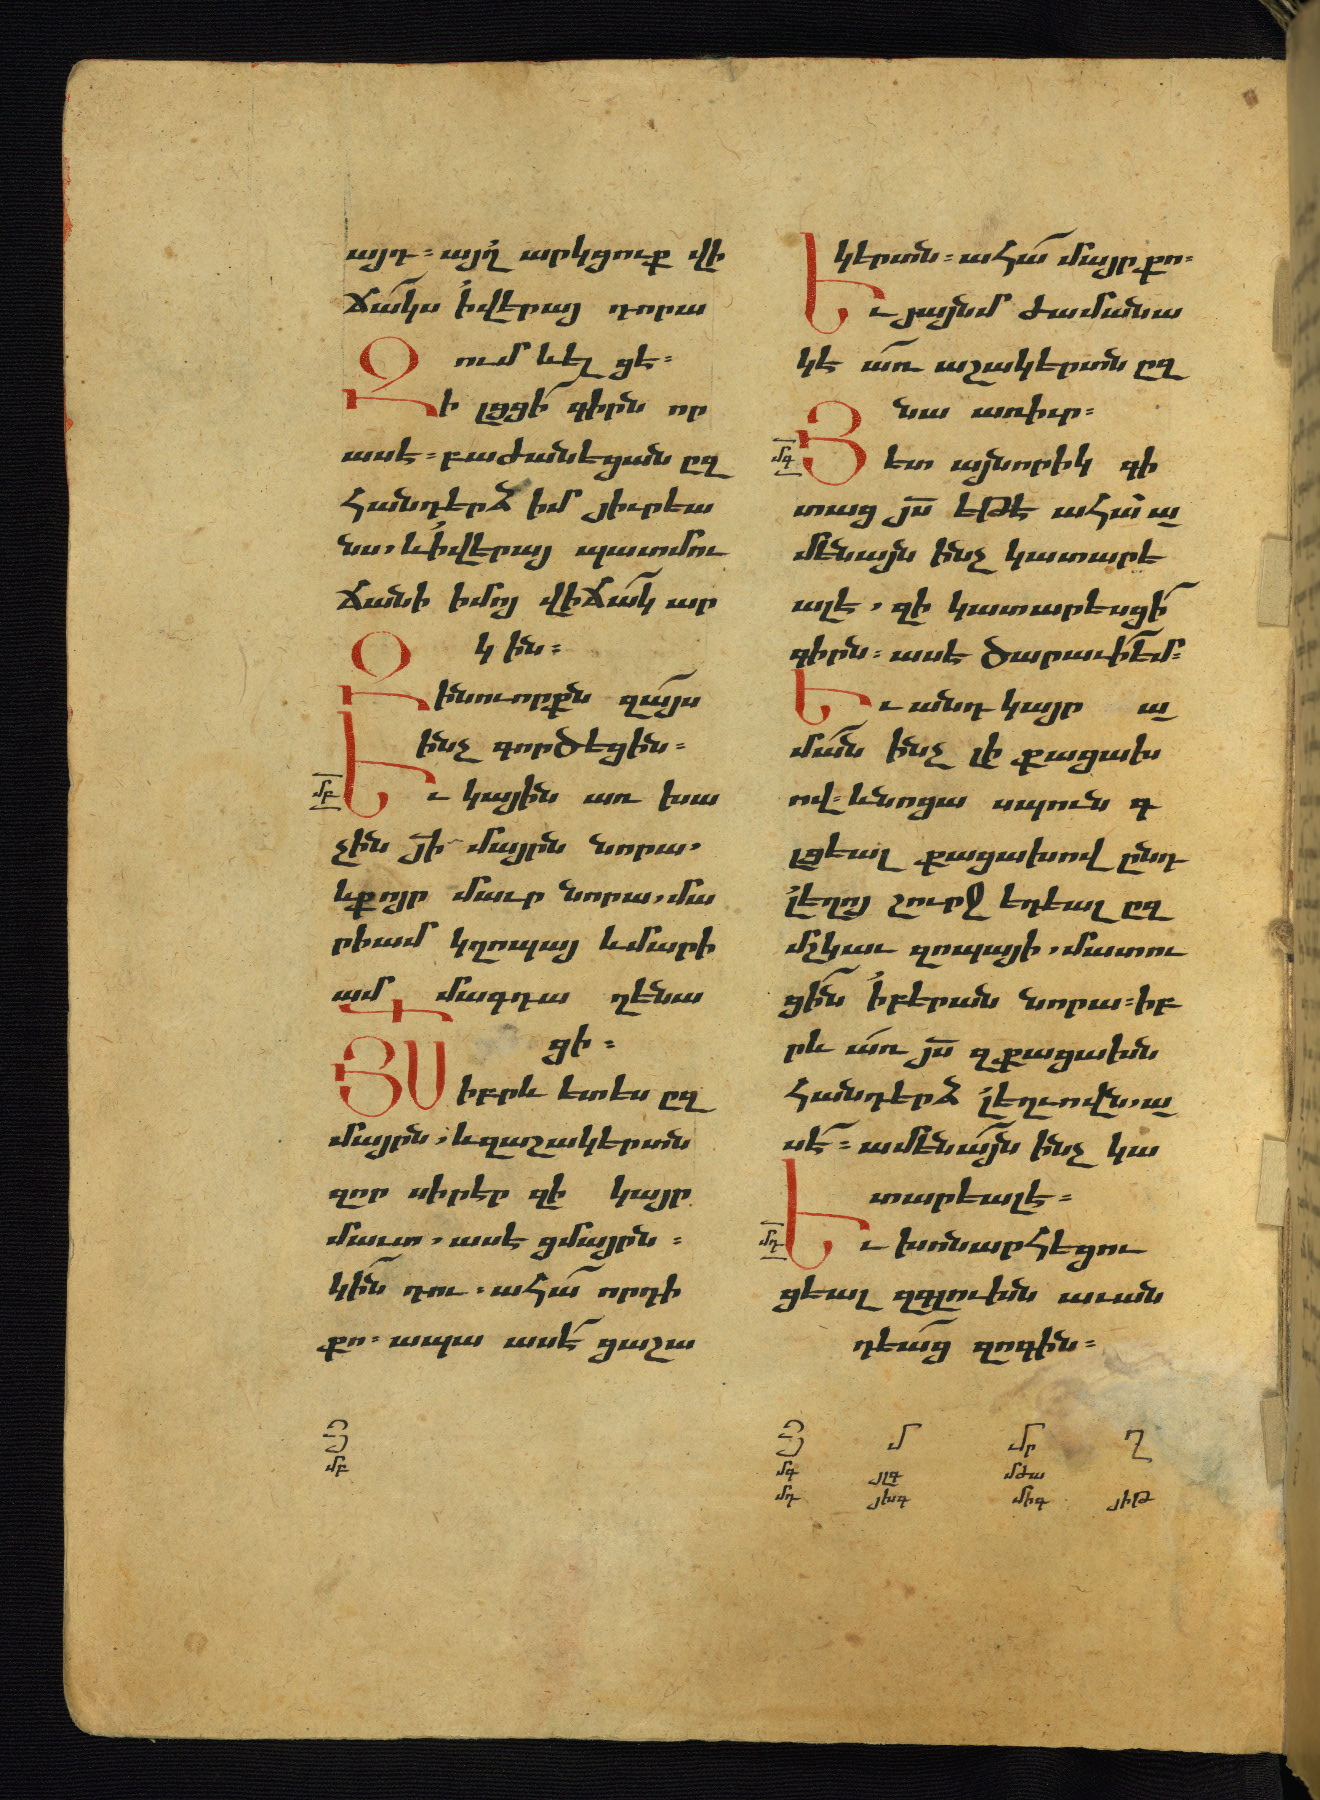 այդ՝ այղ արկցուք վի
ճակս ՛ի վերայ դորա
ում ևէլ ցէ։
Զի լցցի գիրն որ
ասէ՝ բաժանեցան ըզ
հանդերձ իմ յիւրեա
նս, և ՛ի վերայ պատմու
ճանի իմոյ վիճակ ար
կին։
Զինուորքն զայս
ինչ գործեցին։
մբ
Եւ կային առ խա
չին յի մայրն նորա,
և քոյր մաւր նորա, մա
րիամ կղոպայ և մարի
ամ մագդա ղենա
ցի։
ՅՍ իբրև ետես ըզ
մայրն, և զաշակերտն
զոր սիրէր զի կայր
մաւտ, ասէ ցմայրն։
կին դու. ահա որդի
քո։ ապա ասէ ցաշա
կերտն։ ահա մայր քո։
Եւ յայնմ ժամանա
կէ առ աշակերտն ըզ
նա առիւր։
մգ
Յետ այնորիկ գի
տաց յս եթէ ահա ա
մենայն ինչ կատարե
ալէ, զի կատարեսցի
գիրն։ ասէ ծարաւիեմ։
Եւ անդ կայր ա
ման ինչ լի քացախ
ով. և նոցա սպունգ
լցեալ քացախով ընդ
լեղոյ շուրջ եդեալ ըզ
մշկաւ զոպայի, մատու
ցին ՛ի բերան նորա։ իբ
րև առ յս զքացախն
հանդերձ լեղւովն, ա
սէ։ ամենայն ինչ կա
տարեալէ։
մդ
Եւ խոնարհեցու
ցեալ զգլուխն աւան
դեաց զոգին։
Յ
մբ
Յ մ մր ղ
մգ յլգ մժա
մդ յխգ միգ յիթ